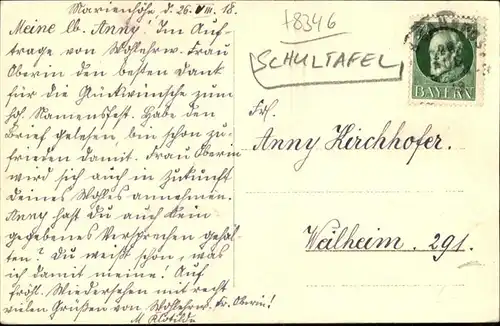 Marienhöhe d. 26. VIII. 18.
Meine lb. Anny! Im Auf-
trage von Wohlehrw. Frau
Oberin den besten Dank
für die Glückwünsche zum
hl. Namensfest. Habe den
Brief gelesen, bin schon zu-
frieden damit. Frau Oberin
wird sich auch in Zukunft
deines Wohles annehmen.
Anny hast Du auch Dein
gegebenes Versprechen gehal-
ten? Du weißt schon, was
ich damit meine! Auf
fröhl. Wiedersehen mit recht
vielen Grüßen von Wohlehrw. Fr. Oberin!
M. Klotilde
78346
SCHULTAFEL
BAYERN
Frl.
Anny Kirchhofer.
Weilheim. 291.